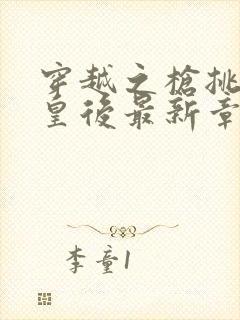 穿越之槍挑
皇後最新章
李童1